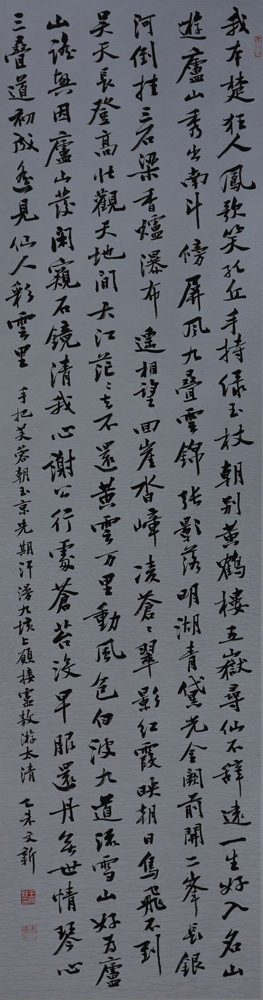 我本楚狂人鳳歌笑孔丘手持綠玉杖朝別黃鶴樓五嶽尋仙不辭遠一生好入名山
遊廬山秀出南斗傍屏風九疊雲錦張影落明湖青黛光金闕前開二峯長銀
河倒挂三石梁香爐瀑布遙相望回崖沓嶂凌蒼〻翠影紅霞映朝日鳥飛不到
吳天長登高壯觀天地間大江茫〻去不還黃雲万里動風色白波九道流雪山好為廬
山謠興因廬山發閑窺石鏡清我心謝公行處蒼苔沒早服還丹無世情琴心
三疊道初成遙見仙人彩雲里手把芙蓉朝玉京先期汗漫九垓上願接盧敖游太清乙未文新